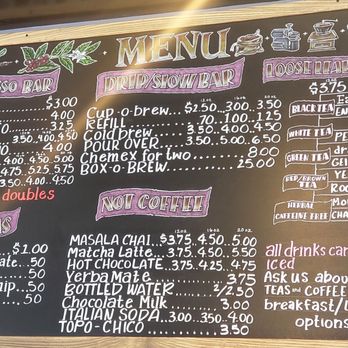 MENU
SSO BAR
$3.00
4.00
3.75
3.50..4.00..4.50
4.00
4.00..4.50..5.00
4.75..5.25..5.75
3.50..4.00..4.50
doubles
$1.00
ate.. .50
.50
hip.. .50
.50
DRIP/SLOW BAR
12oz 16oz 20oz
Cup o·brew... $2.50..3.00..3.50
REFILL .70..1.00..1.25
Cold brew... 3.50..4.00..4.50
POUR OVER 3.50...5.00..6.50
Chemex for two.... 8.00
BOX·O·BREW... 25.00
NOT COFFEE
12oz 16oz 20oz
MASALA CHAI.. $3.75..4.50..5.00
Matcha Latte.. 3.75..4.50..5.50
HOT CHOCOLATE..3.75..4.25..4.75
Yerba Mate 3.75
BOTTLED WATER 2/2.50
Chocolate Milk 3.00
ITALIAN SODA.. 3.00..3.50..4.00
TOPO-CHICO 3.50
LOOSE LEAF
$3.75
BLACK TEA
WHITE TEA
GREEN TEA
RED/BROWN TEA
HERBAL
CAFFEINE FREE
all drinks can
iced
Ask us about
TEAS and COFFEE
breakfast/l
options